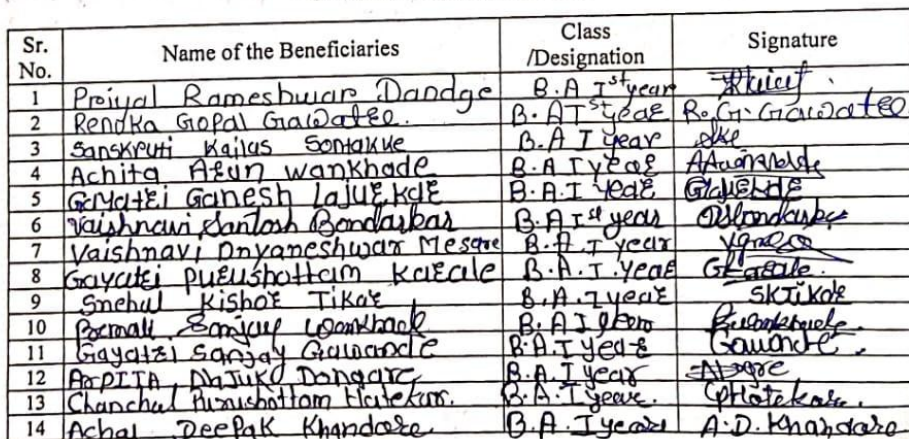 Sr. No. Name of the Beneficiaries Class /Designation Signature
1 Preiyal Rameshwar Dandge B.A Ist year
2 Rendka Gopal Gawatre. B.A Ist year R.G. Gawatre
3 Sanskruti Kailas Sontakke B.A I year
4 Achita Arun wankhade B.A I year
5 Gayatri Ganesh Lajurkar B.A.I year
6 Vaishnavi Santosh Bondarkar B.A Ist year
7 Vaishnavi Dnyaneshwar Mesare B.A. I year
8 Gayatri Purushottam Karale B.A.I. year G.Karale.
9 Snehal Kishor Tikar B.A. I year SKTikar
10 Sanjay Wankhade B.A I
11 Gayatri Sanjay Gawande B.A.I year Gawande.
12 ARPITA Dongare B.A. I year
13 Chanchal Purushottam Hatekar. B.A. I year. CpHatekar.
14 Achal Deepak Khandare B.A. I year A.D. Khandare